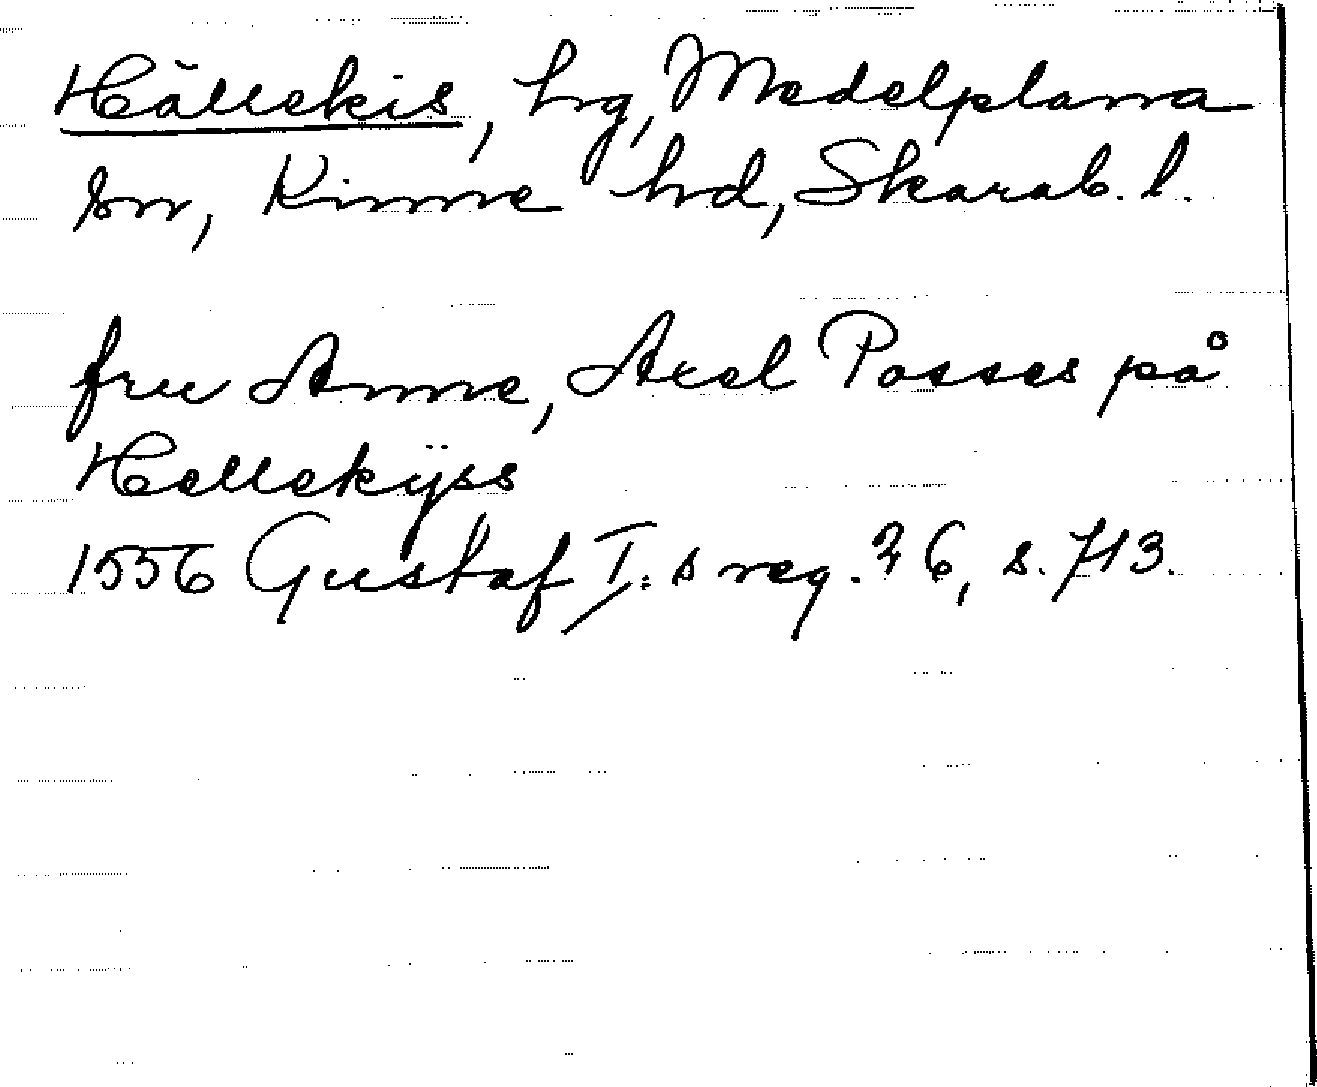 Hällekis, hg, Medelplana
sn, Kinne hd, Skarab. l.
fru Anne, Axel Posses på
Hellekÿss
1556 Gustaf I:s reg. 26, s. 713.